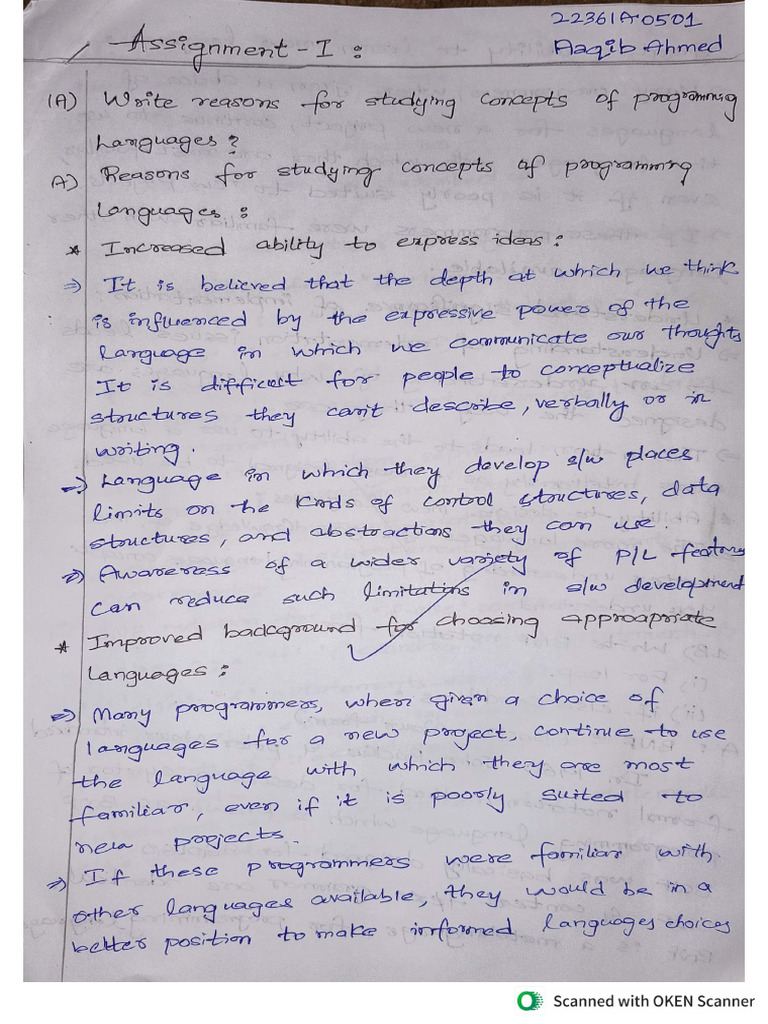 22361A0501
Assignment - I :
Aaqib Ahmed
1A) Write reasons for studying concepts of programming
Languages ?
A) Reasons for studying concepts of programming
Languages :
* Increased ability to express ideas :
⇒ It is believed that the depth at which we think
is influenced by the expressive power of the
language in which we communicate our thoughts
It is difficult for people to conceptualize
structures they can't describe, verbally or in
writing.
⇒ Language in which they develop s/w places
limits on the kinds of control structures, data
structures, and abstractions they can use.
⇒ Awareness of a wider variety of P/L features
can reduce such limitatins in s/w development
* Improved background for choosing approapriate
Languages :
⇒ Many programmers, when given a choice of
languages for a new project, continue to use
the language with which they are most
familiar, even if it is poorly suited to
new projects.
⇒ If these programmers were familiar with
other languages available, they would be in a
better position to make informed languages choices
Scanned with OKEN Scanner